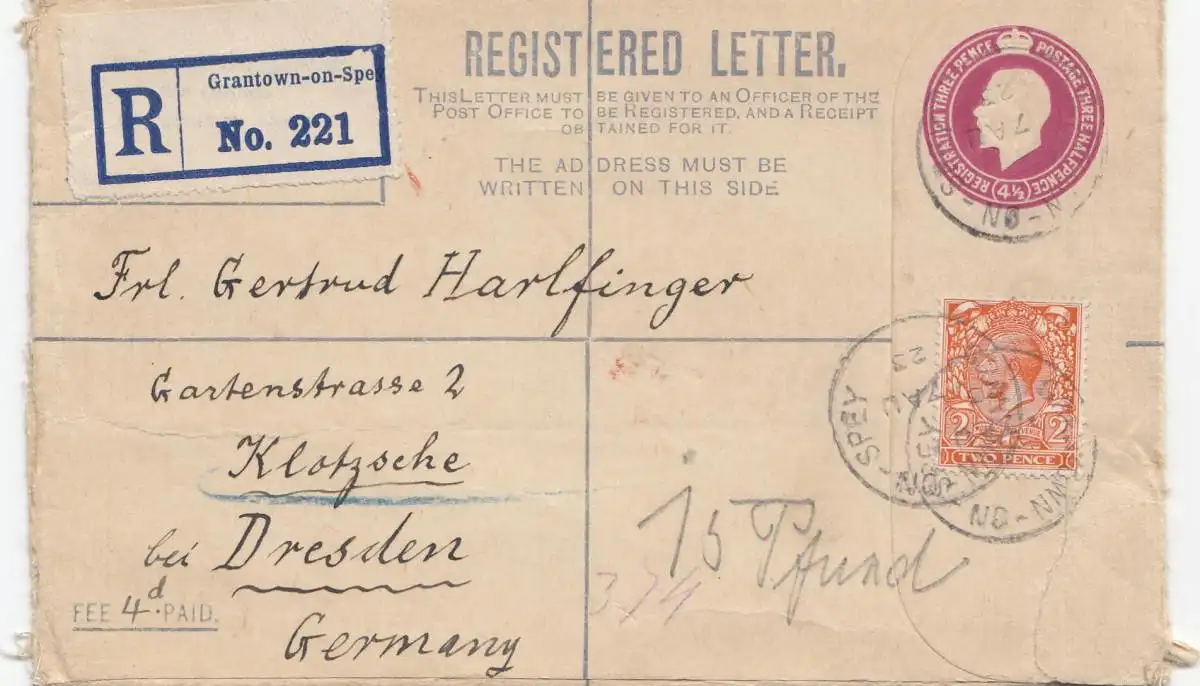 R
Grantown-on-Spey
No. 221
REGISTERED LETTER.
THIS LETTER MUST BE GIVEN TO AN OFFICER OF THE
POST OFFICE TO BE REGISTERED, AND A RECEIPT
OBTAINED FOR IT.
THE ADDRESS MUST BE
WRITTEN ON THIS SIDE
REGISTRATION THREE PENCE POSTAGE THREE HALFPENCE
(4½)
7 AU
23
N-ON-S
Frl. Gertrud Harlfinger
Gartenstrasse 2
Klotzsche
bei Dresden
Germany
FEE 4d. PAID.
2 2
TWO PENCE
-SPEY
7 AU
23
WN-ON
15 Pfund